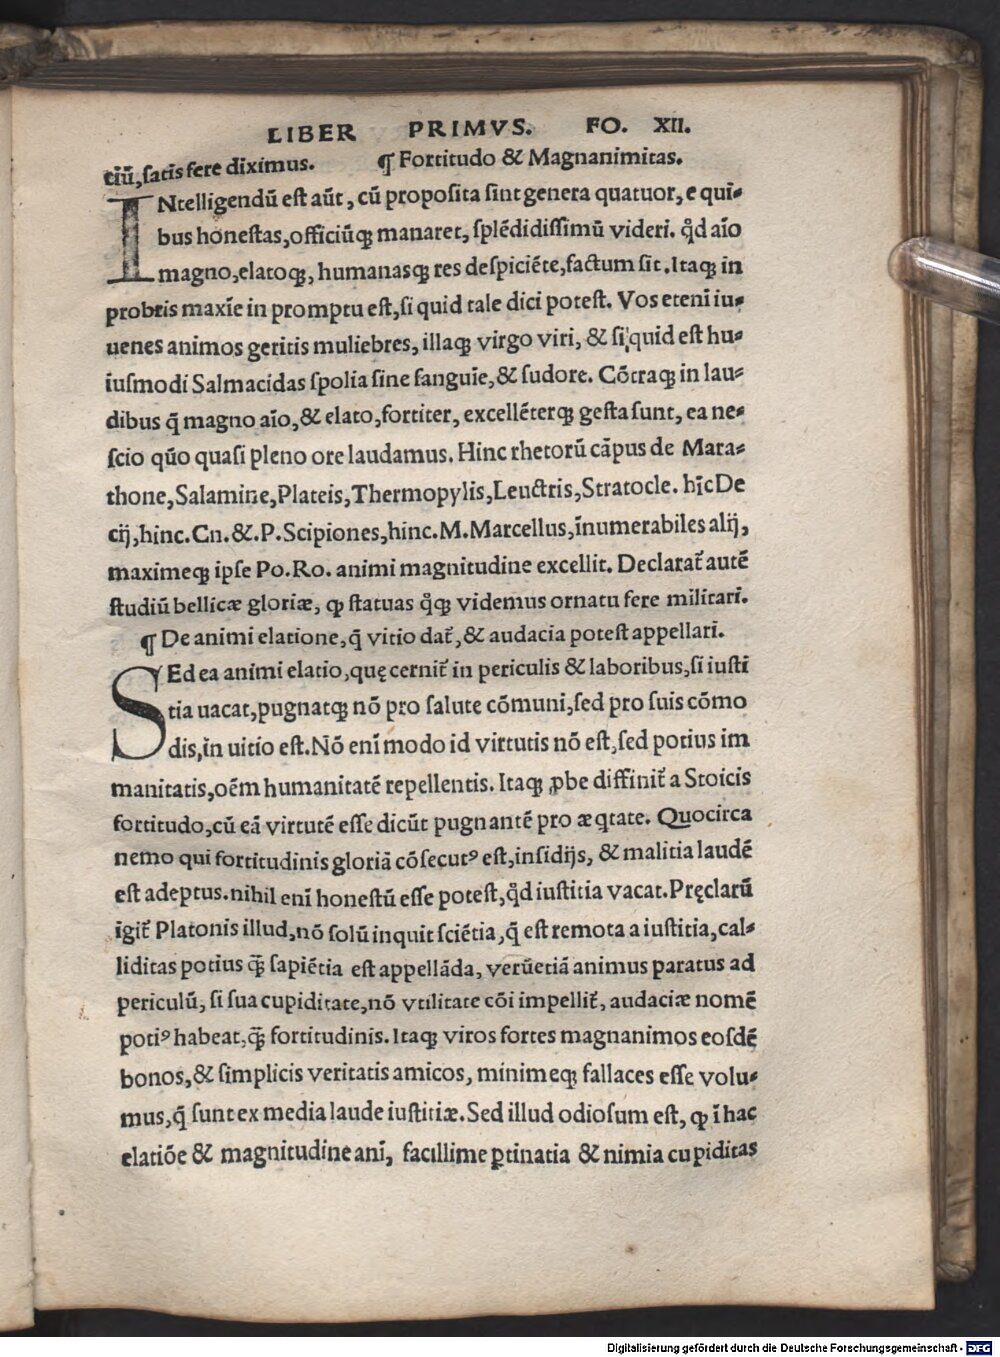 LIBER PRIMVS. FO. XII.
ciū, satis fere diximus. ¶ Fortitudo & Magnanimitas.
INtelligendū est aūt, cū proposita sint genera quatuor, e qui⸗
bus honestas, officiūqꝫ manaret, splēdidissimū videri. qd̛ aīo
magno, elatoqꝫ, humanasqꝫ res despiciēte, factum sit. Itaqꝫ in
probris maxīe in promptu est, si quid tale dici potest. Vos etenī iu⸗
uenes animos geritis muliebres, illaqꝫ virgo viri, & si quid est hu⸗
iusmodi Salmacidas spolia sine sanguīe, & sudore. Cōtraqꝫ in lau⸗
dibus q̄ magno aīo, & elato, fortiter, excellēterqꝫ gesta sunt, ea ne⸗
scio qūo quasi pleno ore laudamus. Hinc rhetorū cāpus de Mara⸗
thone, Salamine, Plateis, Thermopylis, Leuctris, Stratocle. hīc De
cij, hinc. Cn. &. P. Scipiones, hinc. M. Marcellus, īnumerabiles alij,
maximeqꝫ ipse Po. Ro. animi magnitudine excellit. Declarat̄ autē
studiū bellicæ gloriæ, ꝙ statuas q̊qꝫ videmus ornatu fere militari.
¶ De animi elatione, q̄ vitio dat̄, & audacia potest appellari.
SEd ea animi elatio, quę cernit̄ in periculis & laboribus, si iusti
tia uacat, pugnatqꝫ nō pro salute cōmuni, sed pro suis cōmo
dis, in uitio est. Nō enī modo id virtutis nō est, sed potius im
manitatis, oēm humanitatē repellentis. Itaqꝫ ꝓbe diffinit̄ a Stoicis
fortitudo, cū eā virtutē esse dicūt pugnantē pro æqtate. Quocirca
nemo qui fortitudinis gloriā cōsecutꝰ est, insidijs, & malitia laudē
est adeptus. nihil enī honestū esse potest, qd̛ iustitia vacat. Pręclarū
igit̄ Platonis illud, nō solū inquit sciētia, q̄ est remota a iustitia, cal⸗
liditas potius qꝫ̄ sapiētia est appellāda, verūetiā animus paratus ad
periculū, si sua cupiditate, nō vtilitate cōi impellit̄, audaciæ nomē
potiꝰ habeat, qꝫ̄ fortitudinis. Itaqꝫ viros fortes magnanimos eosdē
bonos, & simplicis veritatis amicos, minimeqꝫ fallaces esse volu⸗
mus, q̄ sunt ex media laude iustitiæ. Sed illud odiosum est, ꝙ ī hac
elatiōe & magnitudine anī, facillime ꝑtinatia & nimia cupiditas
Digitalisierung gefördert durch die Deutsche Forschungsgemeinschaft - DFG